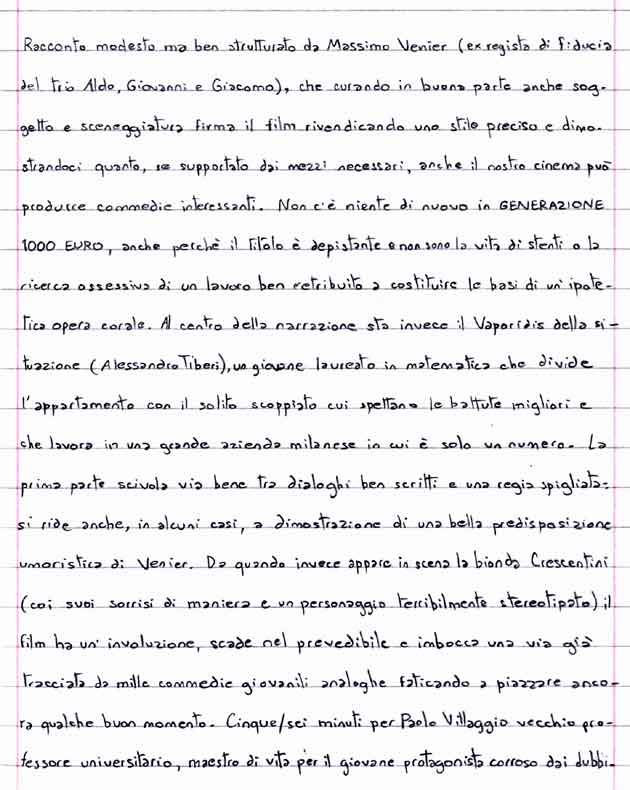 Racconto modesto ma ben strutturato da Massimo Venier (ex regista di fiducia
del trio Aldo, Giovanni e Giacomo), che curando in buona parte anche sog-
getto e sceneggiatura firma il film rivendicando uno stile preciso e dimo-
strandoci quanto, se supportato dai mezzi necessari, anche il nostro cinema può
produrre commedie interessanti. Non c'è niente di nuovo in GENERAZIONE
1000 EURO, anche perchè il titolo è depistante e non sono la vita di stenti o la
ricerca ossessiva di un lavoro ben retribuito a costituire le basi di un'ipote-
tica opera corale. Al centro della narrazione sta invece il Vaporidis della si-
tuazione (Alessandro Tiberi), un giovane laureato in matematica che divide
l'appartamento con il solito scoppiato cui spettano le battute migliori e
che lavora in una grande azienda milanese in cui è solo un numero. La
prima parte scivola via bene tra dialoghi ben scritti e una regia spigliata:
si ride anche, in alcuni casi, a dimostrazione di una bella predisposizione
umoristica di Venier. Da quando invece appare in scena la bionda Crescentini
(coi suoi sorrisi di maniera e un personaggio terribilmente stereotipato) il
film ha un' involuzione, scade nel prevedibile e imbocca una via già
tracciata da mille commedie giovanili analoghe faticando a piazzare anco-
ra qualche buon momento. Cinque/sei minuti per Paolo Villaggio vecchio pro-
fessore universitario, maestro di vita per il giovane protagonista corroso dai dubbi.